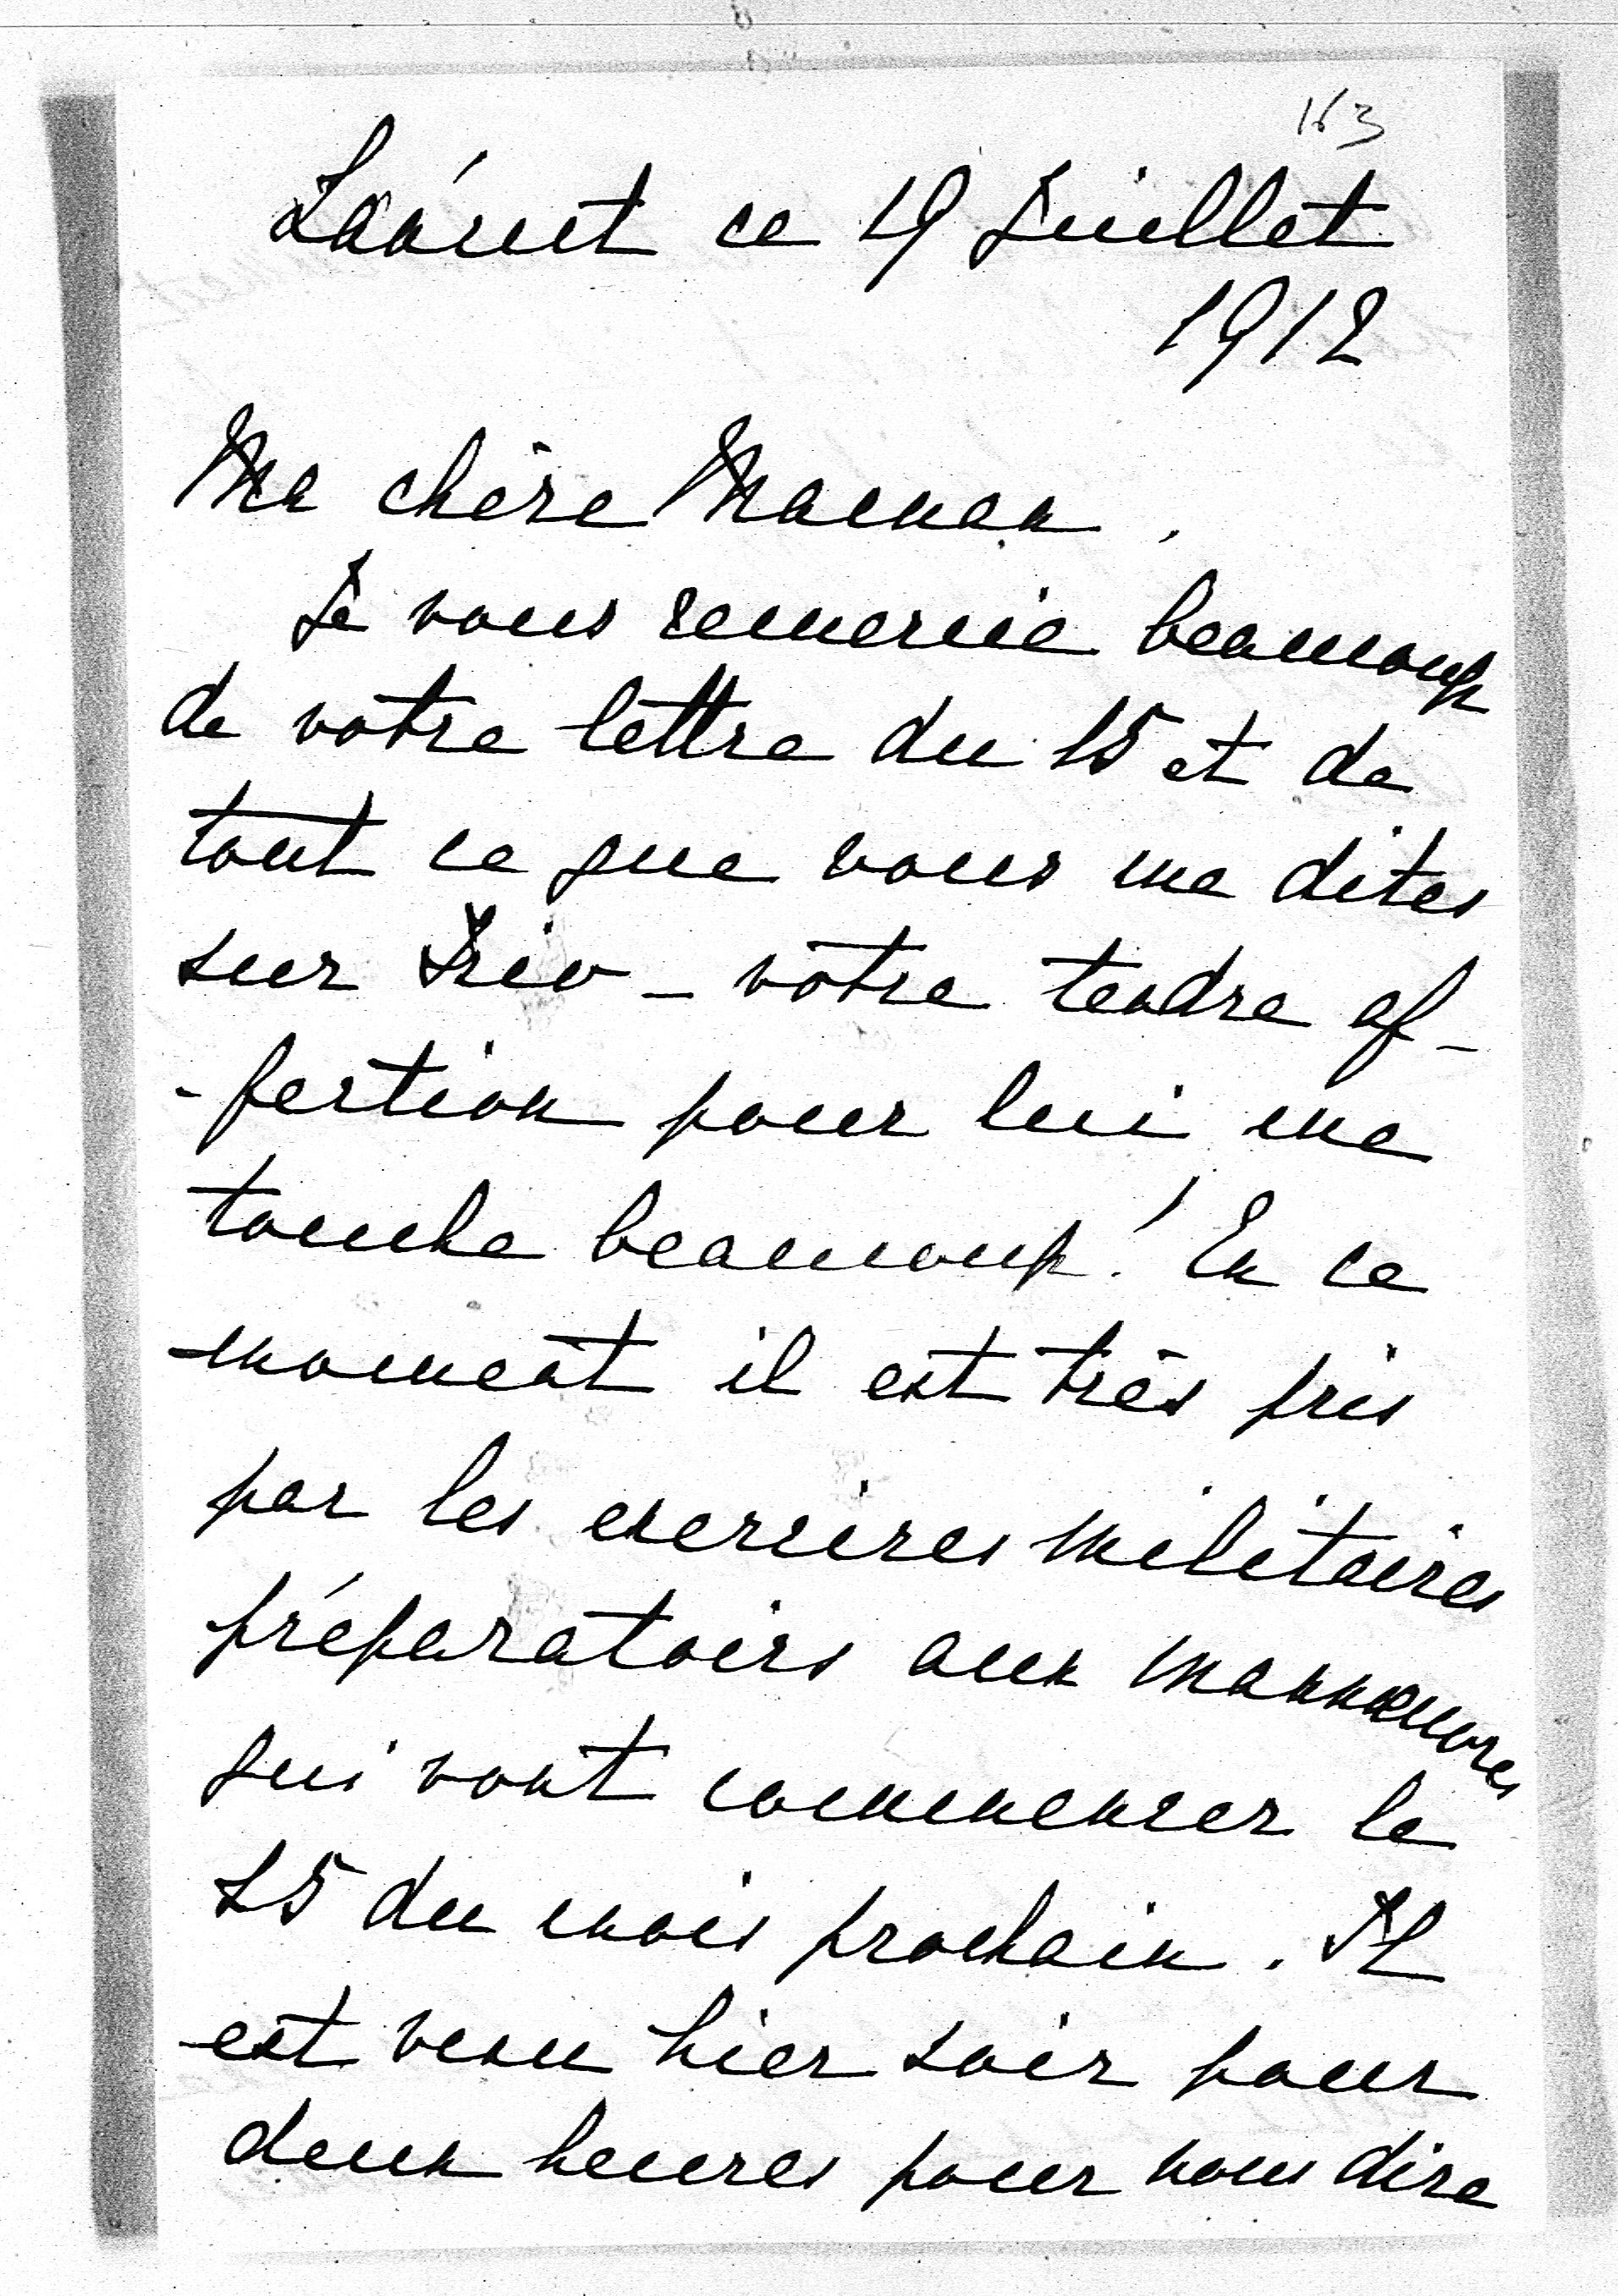 163
Lańcut ce 19 Juillet
1912
Ma chère Maman,
Je vous remercie beaucoup
de votre lettre du 15 et de
tout ce que vous me dites
sur - votre tendre af-
-fection pour lui me
touche beaucoup! En ce
moment il est très pris
par les exercices militaires
préparatoirs aux mannœuvres
qui vont commencer le
15 du mois prochain. Il
est venu hier soir pour
deux heures pour nous dire